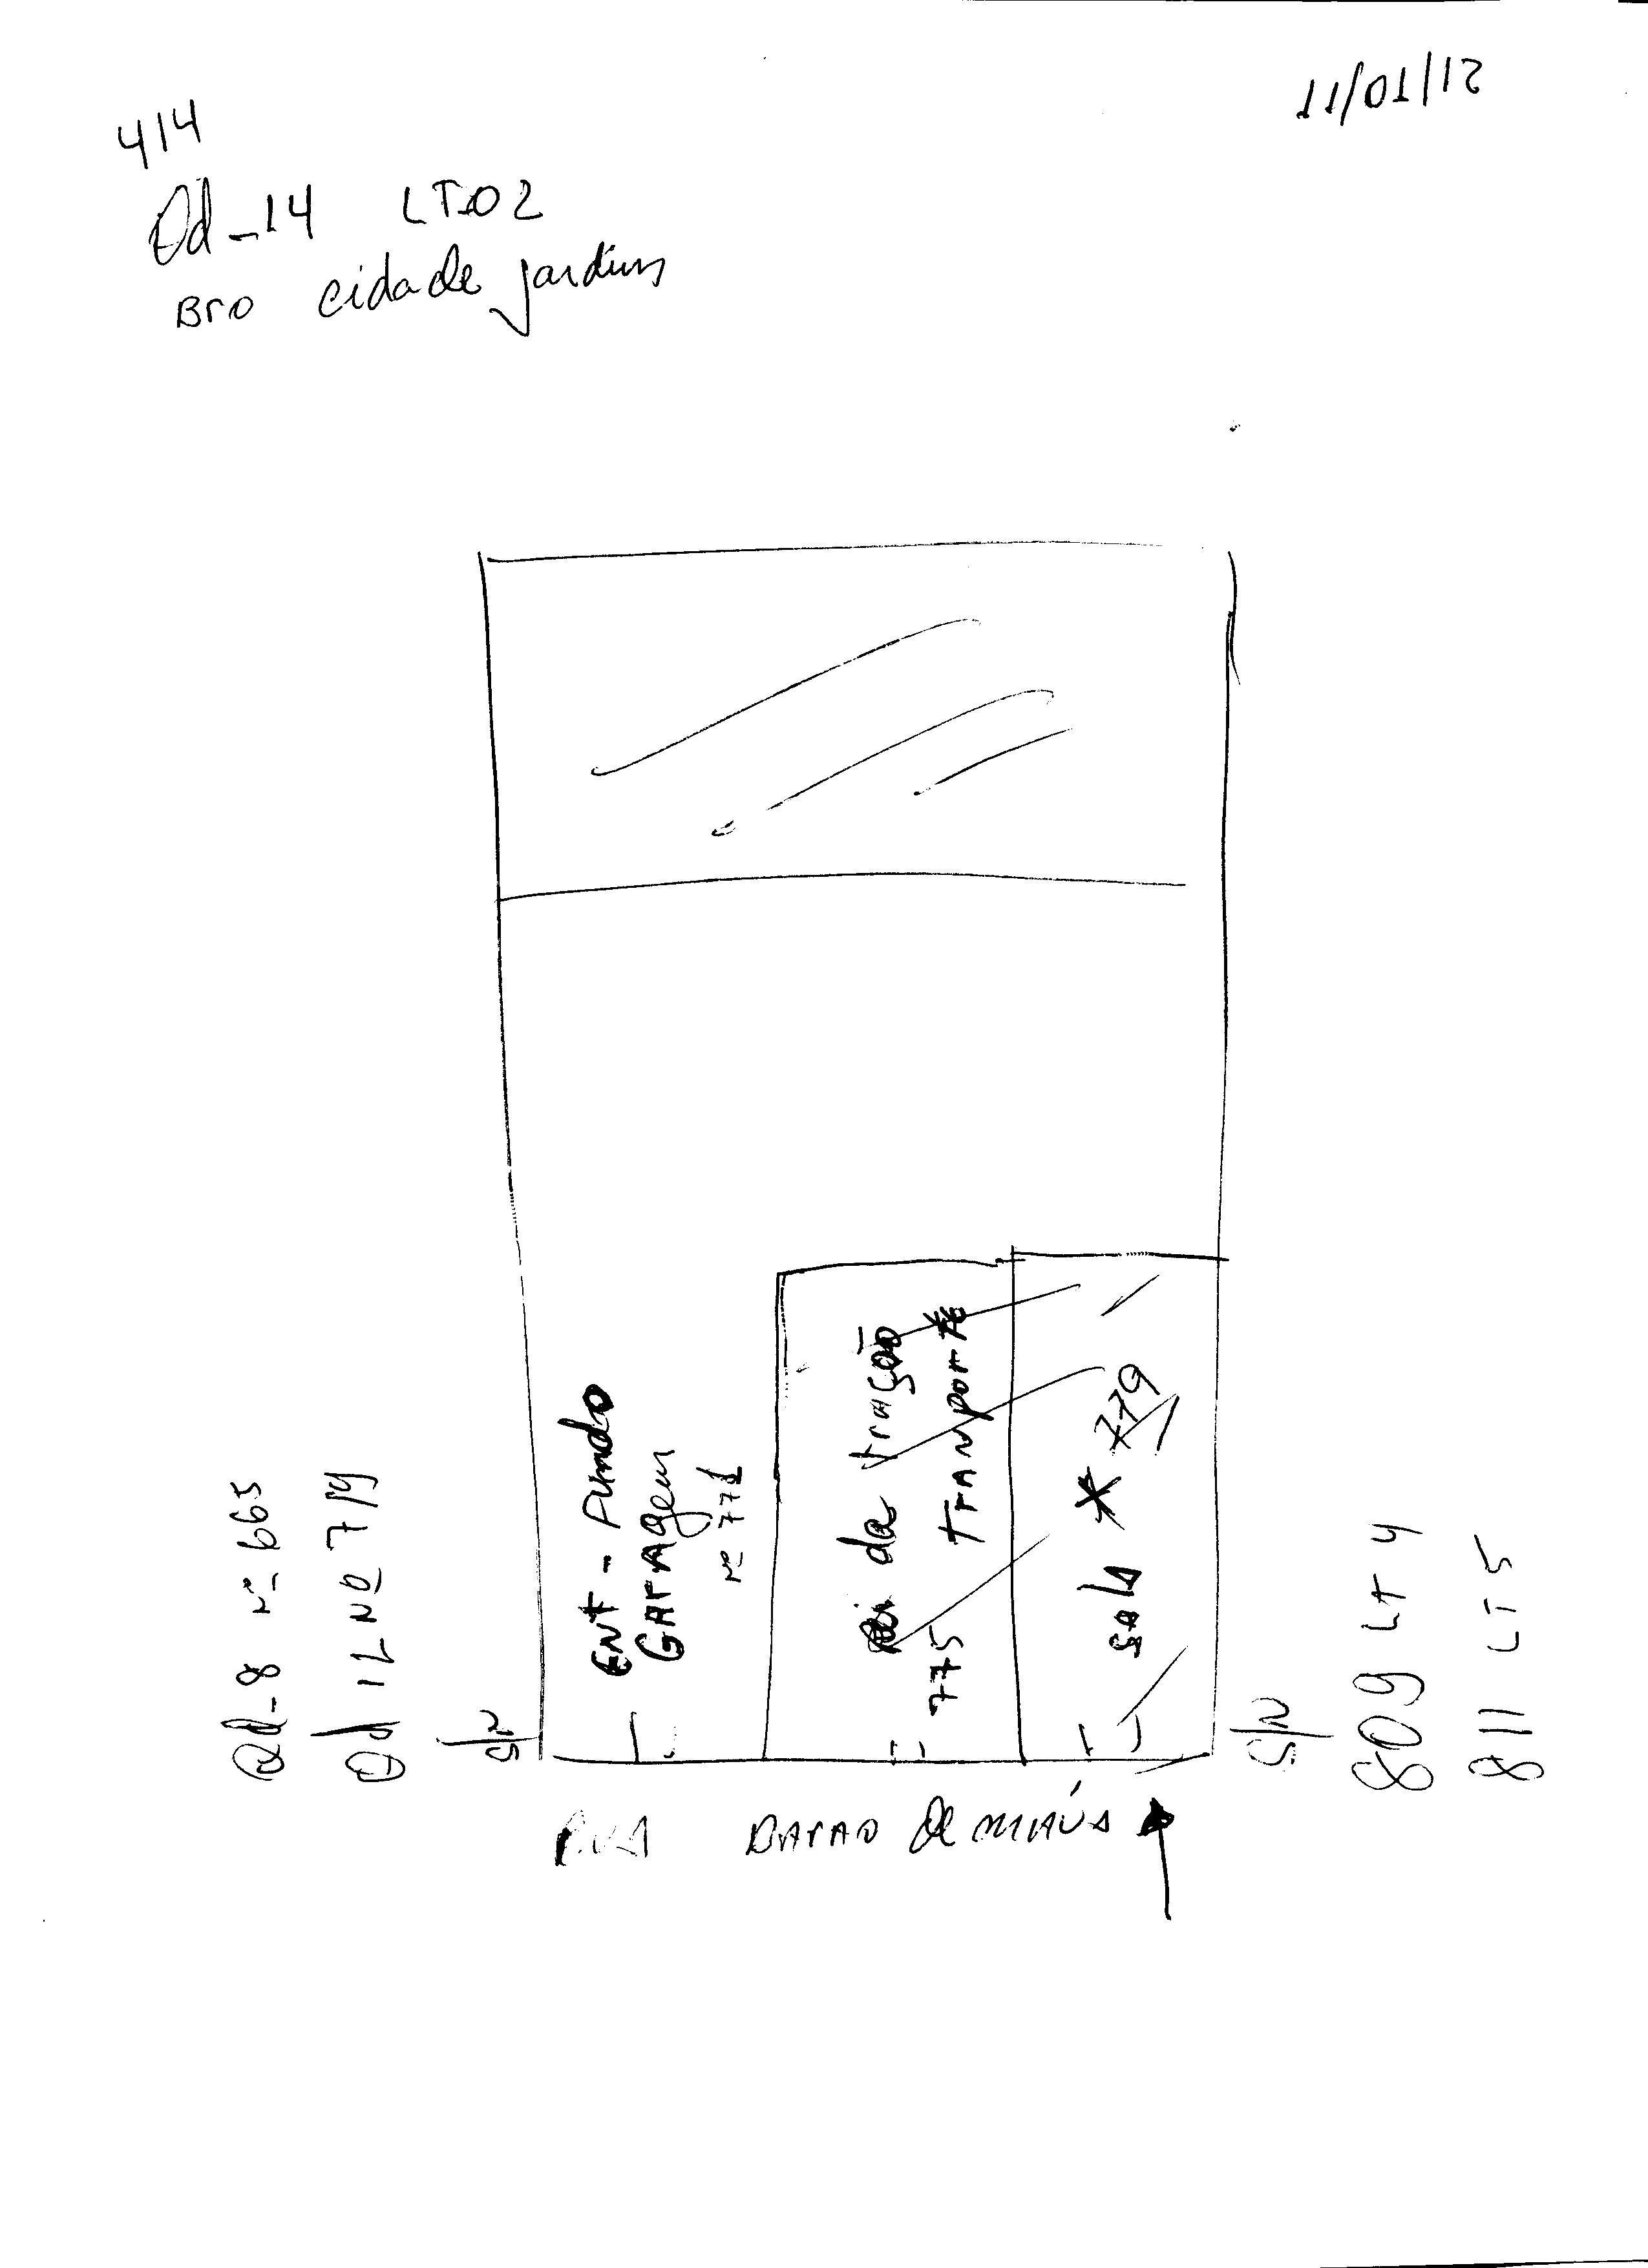 11/01/12
414
Qd-14 LT-02
Bro cidade jardins
Qd-8 nº 665
Qd 12 Nº 719
S/N
Ent - Fundo
GarAgem
nº 771
Rei da tração
Tranporte
775
sala * 779
S/N
809 LT 4
811 LT 5
RUA BARAO DE MAUÁ